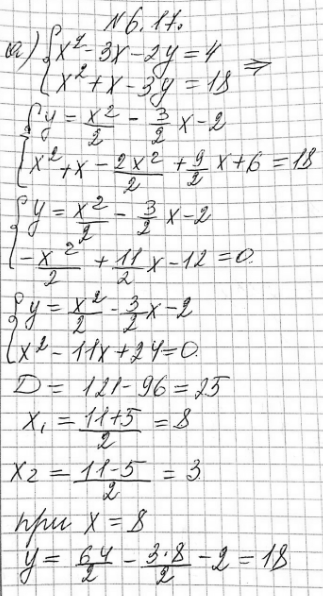 №6.17.
а) { x² - 3x - 2y = 4
{ x² + x - 3y = 18 ⇒
{ y = x²/2 - 3/2 x - 2
{ x² + x - 2x²/2 + 9/2 x + 6 = 18
{ y = x²/2 - 3/2 x - 2
{ - x²/2 + 11/2 x - 12 = 0.
{ y = x²/2 - 3/2 x - 2
{ x² - 11x + 24 = 0.
D = 121 - 96 = 25
x₁ = (11+5)/2 = 8
x₂ = (11-5)/2 = 3
при x = 8
y = 64/2 - 3·8/2 - 2 = 18